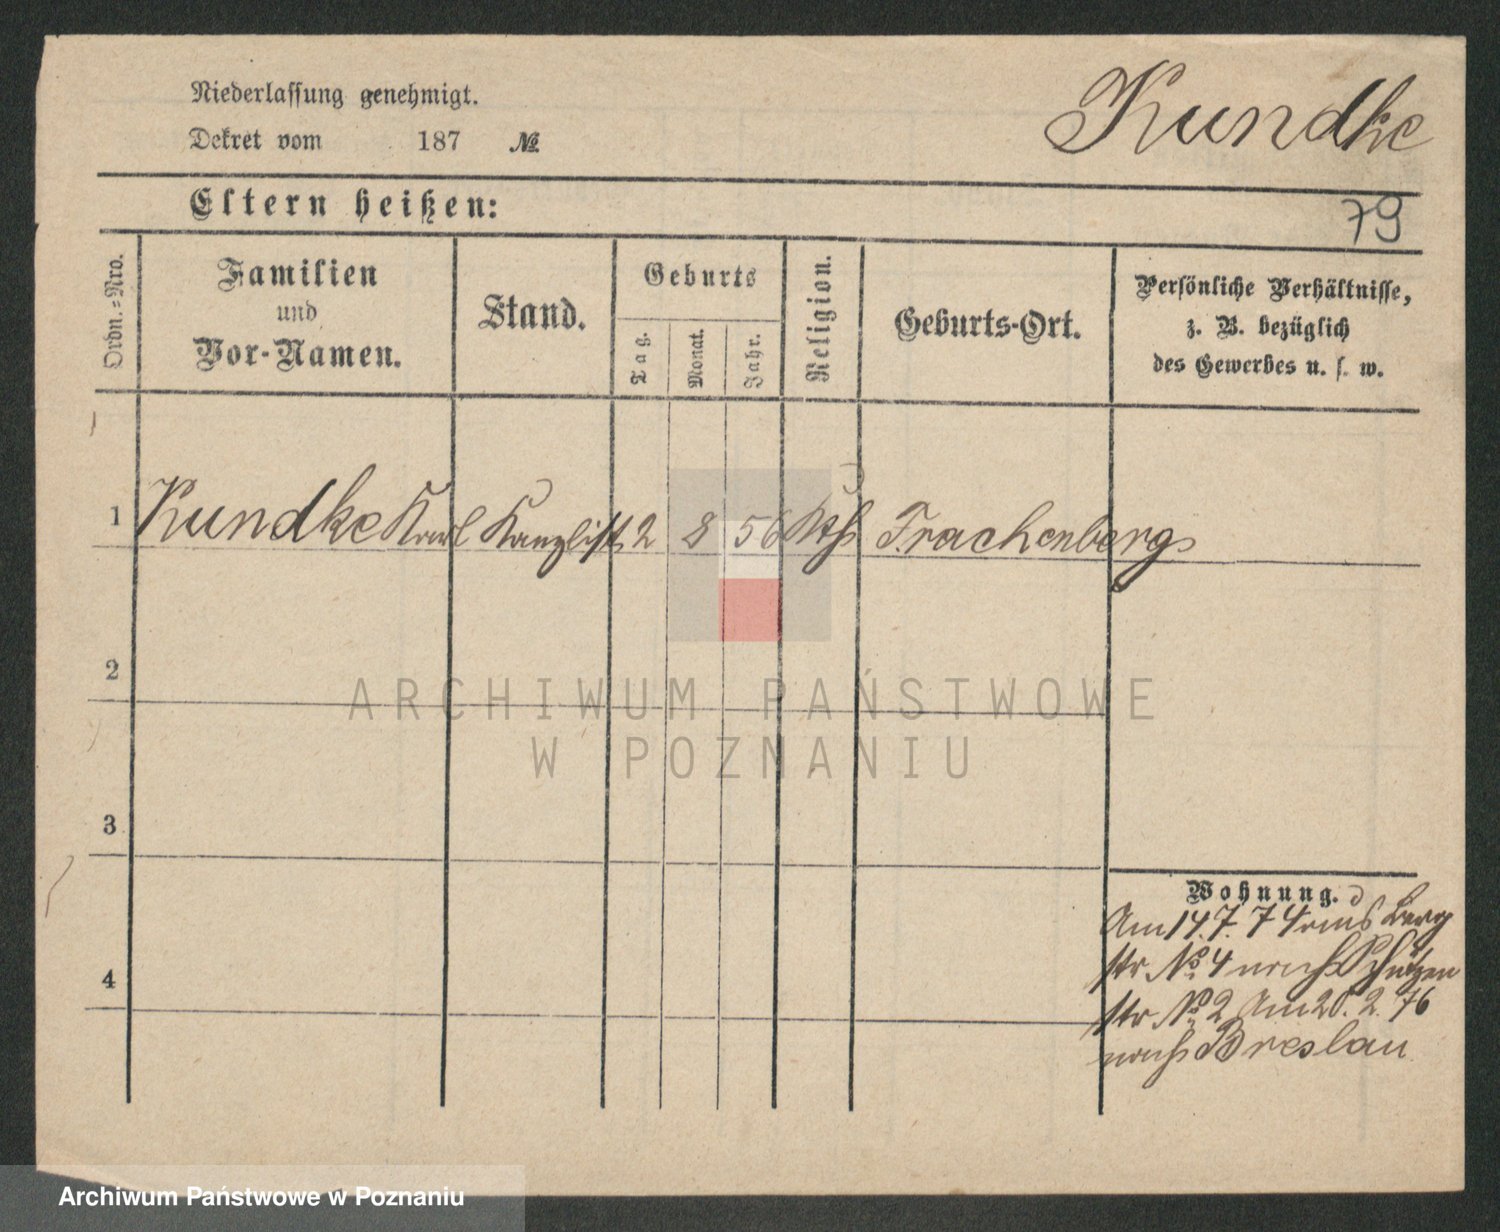 Niederlassung genehmigt.
Dekret vom 187 №
Kundke
79
Eltern heißen:
Ordn.-Nro.
Familien
und
Vor-Namen.
Stand.
Geburts
Tag.
Monat.
Jahr.
Religion.
Geburts-Ort.
Persönliche Verhältnisse,
z. B. bezüglich
des Gewerbes u. s. w.
1 Kundke Karl Kanzlist 2 8 56 Kth Trachenberg
2
3
4
Wohnung.
Am 14.7.74 aus Berg
str № 4 nach Schützen
str № 2 Am 20.2.76
nach Breslau
ARCHIWUM PAŃSTWOWE
W POZNANIU
Archiwum Państwowe w Poznaniu